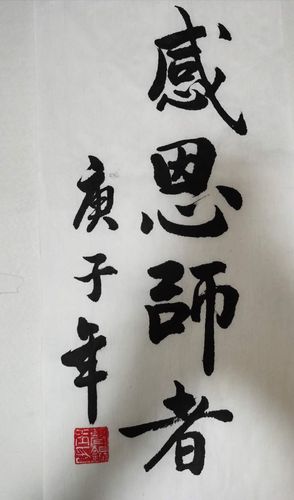 感恩師者
庚子年